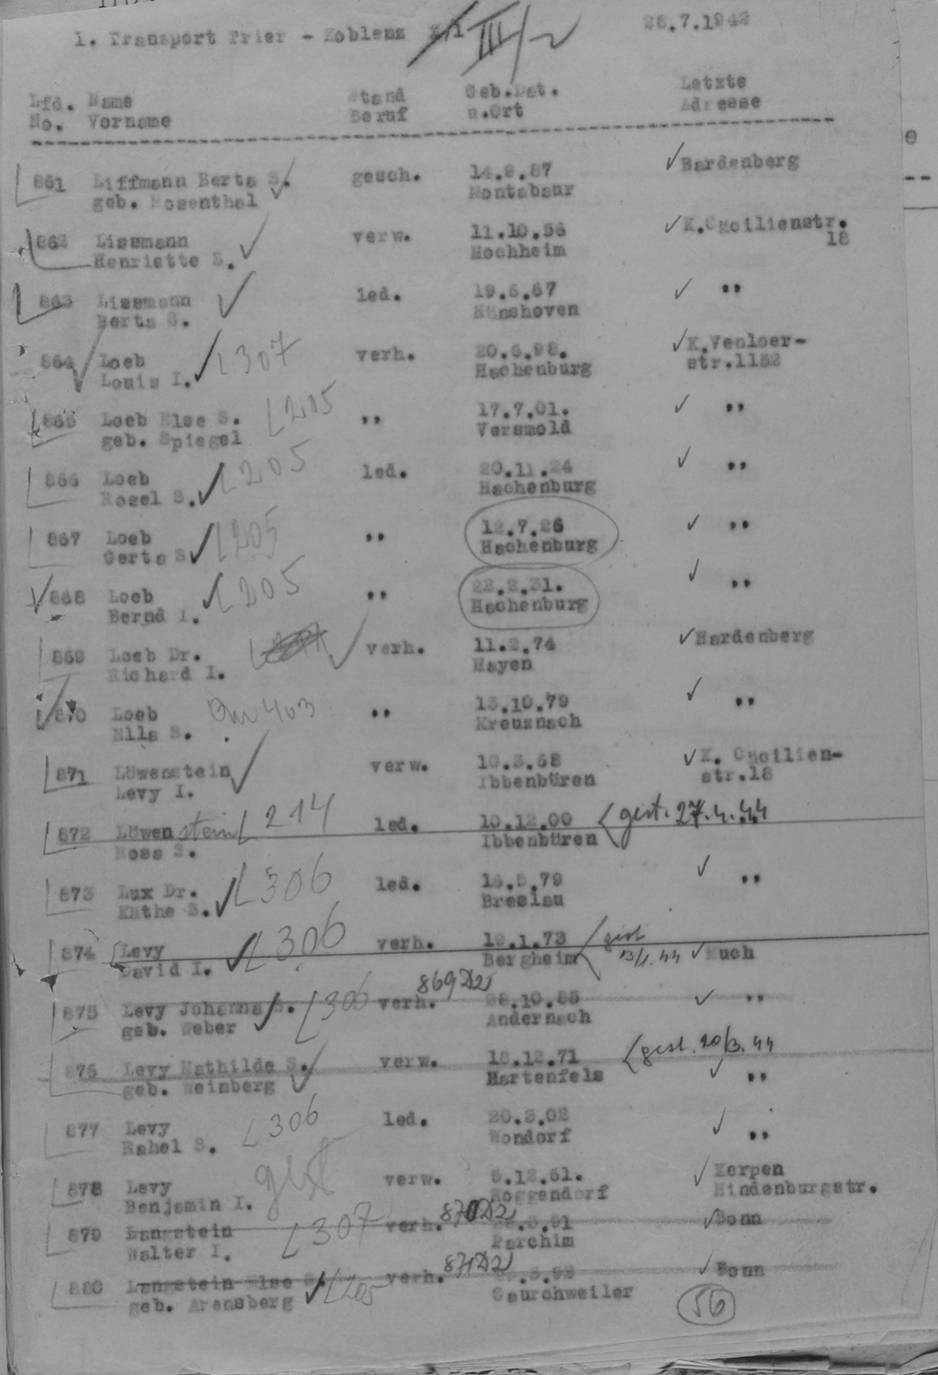 1. Transport Trier - Koblenz III/2 28.7.1942
Lfd. Name Stand Geb.Dat. Letzte
No. Vorname Beruf u.Ort Adresse
861 Liffmann Berta S. gesch. 14.9.87 Bardenberg
geb. Rosenthal Montabaur
862 Lissmann verw. 11.10.56 K.Cäcilienstr.
Henriette S. Hochheim 18
863 Lissmann led. 19.6.67 "
Berta S. Hünshoven
864 Loeb L307 verh. 20.6.98. K.Venloer-
Louis I. Hachenburg str.1152
865 Loeb Else S. L205 " 17.7.01. "
geb. Spiegel Versmold
866 Loeb L205 led. 20.11.24 "
Rosel S. Hachenburg
867 Loeb L205 " 12.7.26 "
Gerta S. Hachenburg
868 Loeb L205 " 22.2.31. "
Bernd I. Hachenburg
869 Loeb Dr. verh. 11.2.74 Hardenberg
Richard I. Mayen
870 Loeb 403 " 13.10.79 "
Ella S. Kreuznach
871 Löwenstein verw. 10.3.68 K. Cäcilien-
Levy I. Ibbenbüren str.18
872 Löwenstein L214 led. 10.12.00 gest. 27.4.44
Rosa S. Ibbenbüren
873 Lux Dr. L306 led. 16.5.79 "
Käthe S. Breslau
874 Levy L306 verh. 19.1.73 gest
David I. Bergheim 13/1.44 Much
875 Levy Johanna S. L306 verh. 869D2 28.10.85 "
geb. Weber Andernach
876 Levy Mathilde S. verw. 18.12.71 gest. 20/3.44
geb. Weinberg Hartenfels "
877 Levy L306 led. 20.3.02 "
Rahel S. Wondorf
878 Levy gest verw. 6.12.61. Kerpen
Benjamin I. Roggendorf Hindenburgstr.
879 Langstein L307 verh. 870D2 Bonn
Walter I. Parchim
880 Langstein Else S. L205 verh. 871D2 Bonn
geb. Arensberg
56